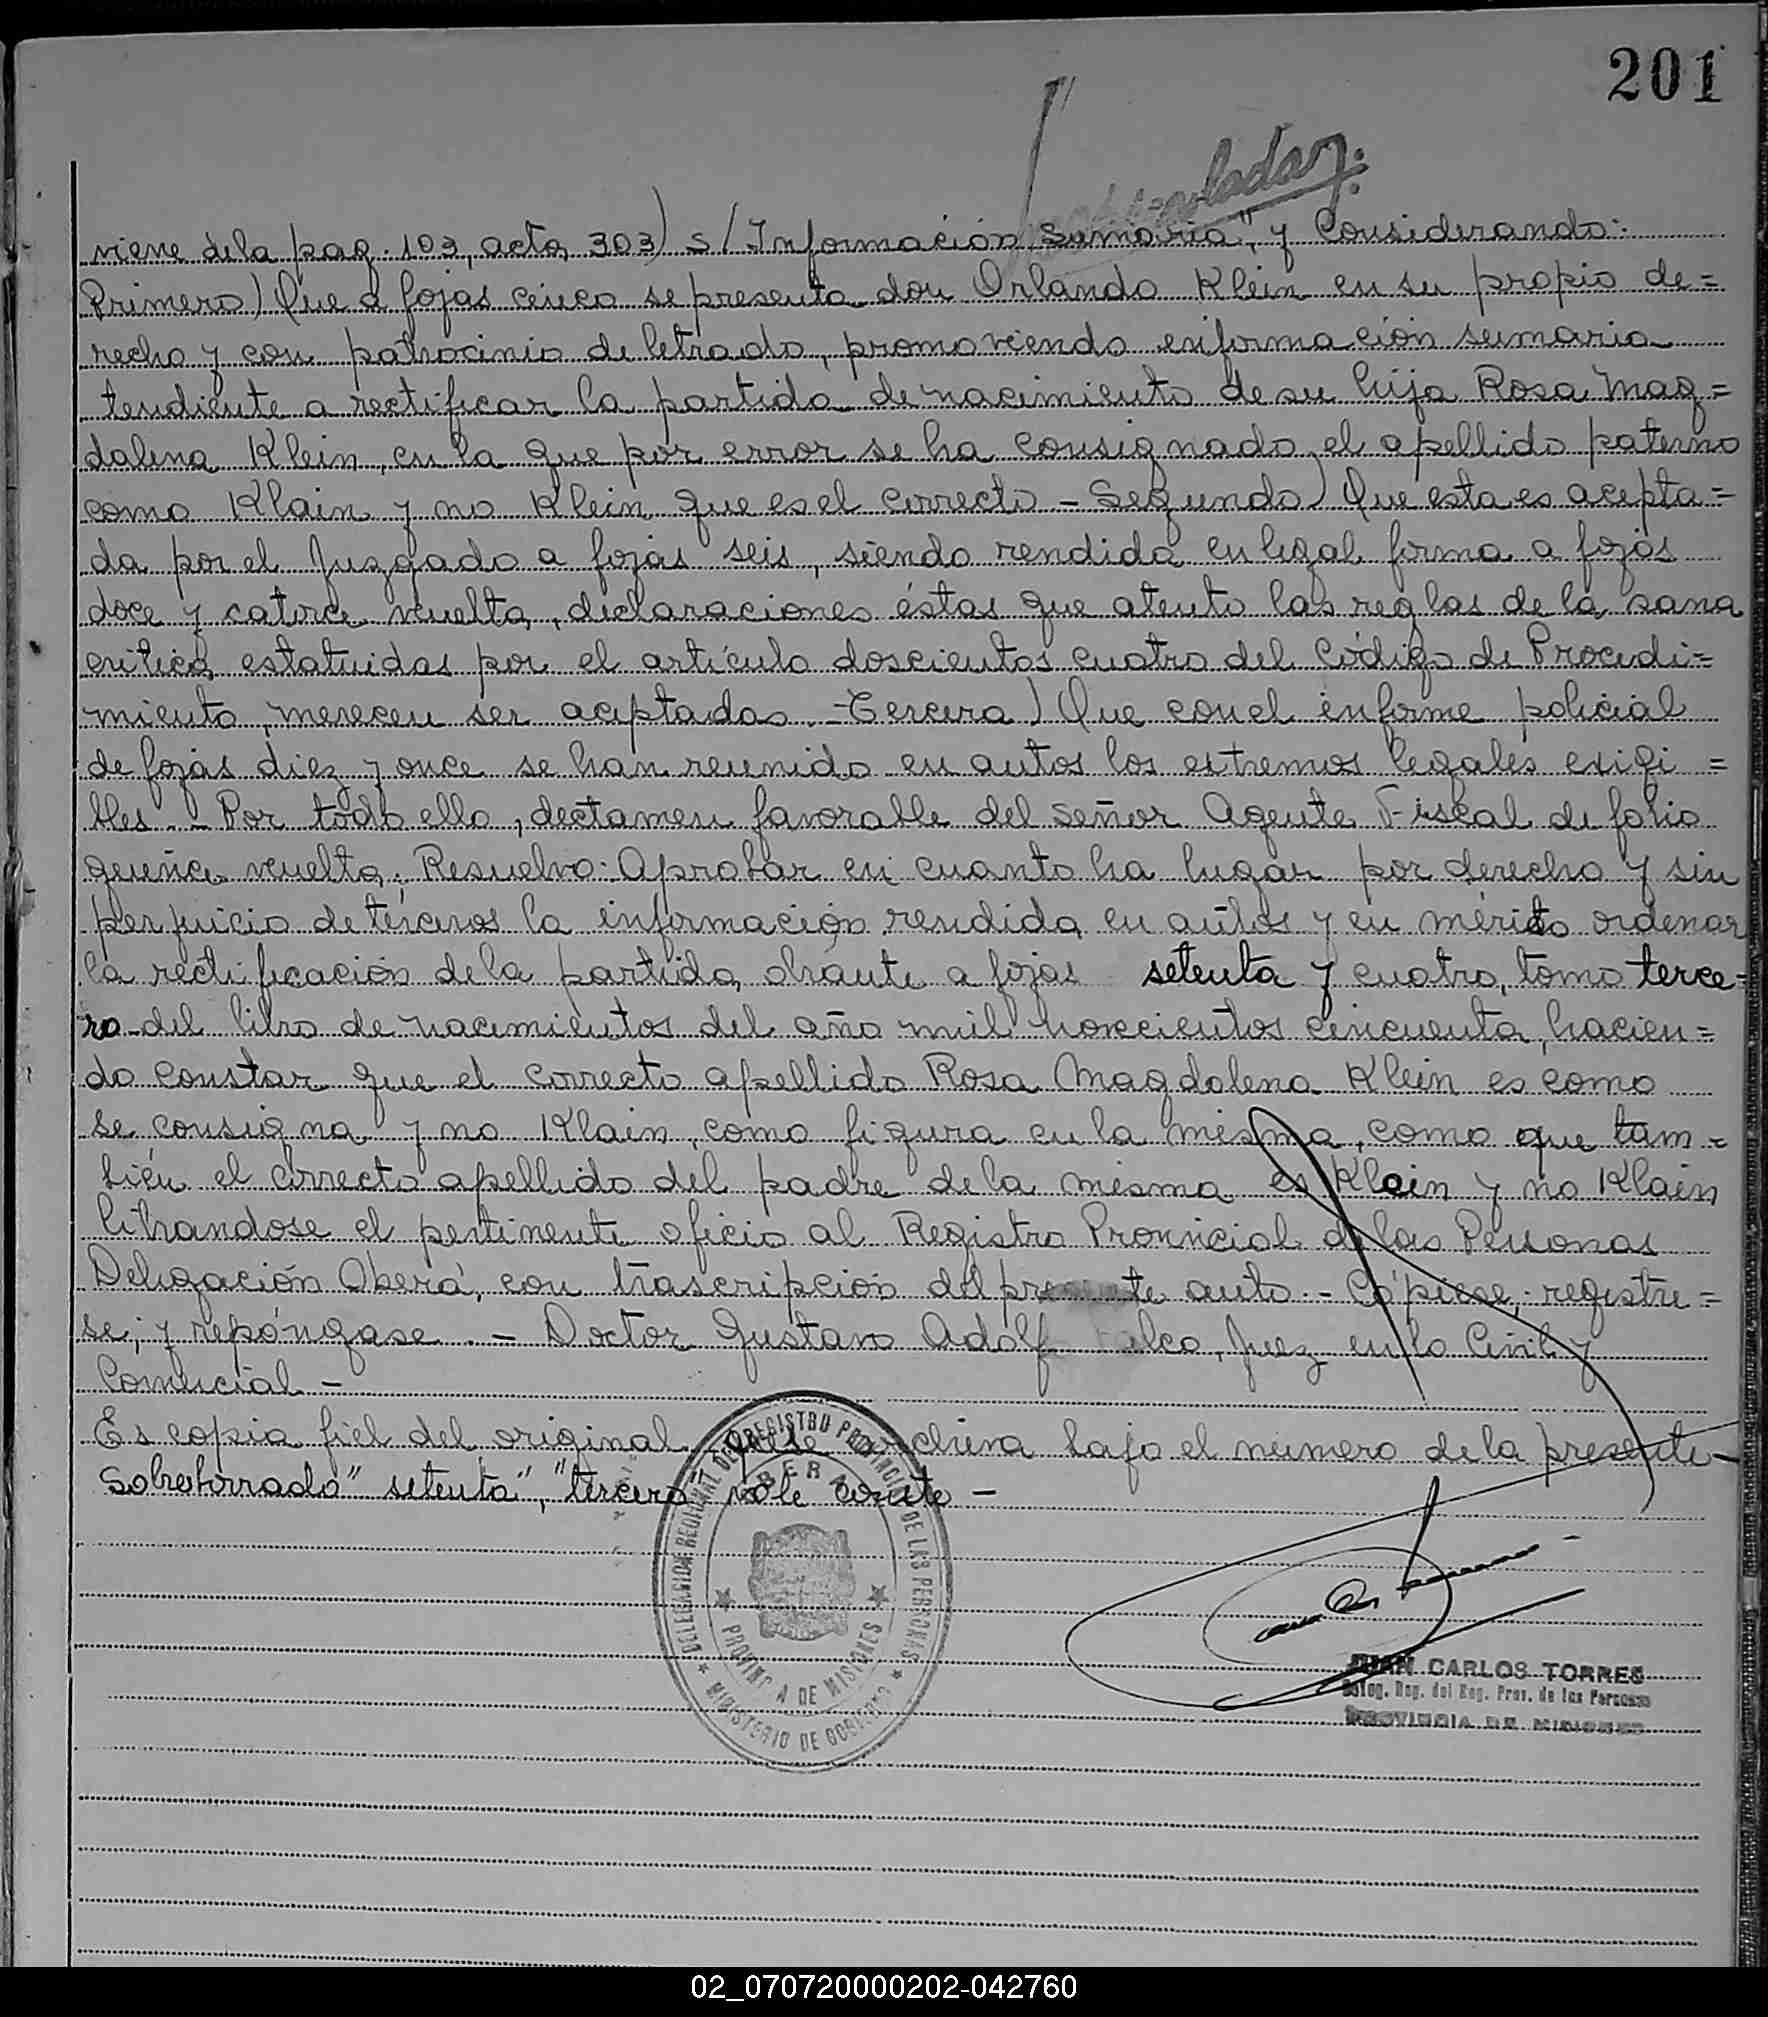 201
viene de la pag. 103, acta 303) s/Información Sumaria", y Considerando:
Primero) Que a fojas cinco se presenta don Orlando Klein en su propio de=
recho y con patrocinio de letrado, promoviendo información sumaria
tendiente a rectificar la partida de nacimiento de su hija Rosa Mag=
dalena Klein, en la que por error se ha consignado el apellido paterno
como Klain y no Klein que es el correcto - Segundo) Que esta es acepta=
da por el Juzgado a fojas seis, siendo rendida en legal forma a fojas
doce y catorce vuelta, declaraciones éstas que atento las reglas de la sana
crítica estatuidas por el artículo doscientos cuatro del Código de Procedi=
miento, merecen ser aceptadas. - Tercero) Que con el informe policial
de fojas diez y once se han reunido en autos los extremos legales exigi=
bles. - Por todo ello, dictamen favorable del Señor Agente Fiscal de folio
quince vuelta; Resuelvo: Aprobar en cuanto ha lugar por derecho y sin
perjuicio de terceros la información rendida en autos y en mérito ordenar
la rectificación de la partida obrante a fojas setenta y cuatro, tomo terce-
ro del libro de nacimientos del año mil novecientos cincuenta, hacien=
do constar que el correcto apellido Rosa Magdalena Klein es como
se consigna y no Klain, como figura en la misma, como que tam=
bién el correcto apellido del padre de la misma es Klein y no Klain
librandose el pertinente oficio al Registro Provincial de las Personas
Delegación Oberá, con trascripción del presente auto. - Cópiese, registre=
se, y repóngase. - Doctor Gustavo Adolf alco, Juez en lo Civil y
Comercial -
Es copia fiel del original que se archiva bajo el número de la presente -
Sobreborrado "setenta", "tercero" vale conste -
DELEGACION REGIONAL DEL REGISTRO PROVINCIAL DE LAS PERSONAS
OBERA
PROVINCIA DE MISIONES
MINISTERIO DE GOBIERNO
JUAN CARLOS TORRES
Deleg. Reg. del Reg. Prov. de las Personas
PROVINCIA DE MISIONES
02_070720000202-042760